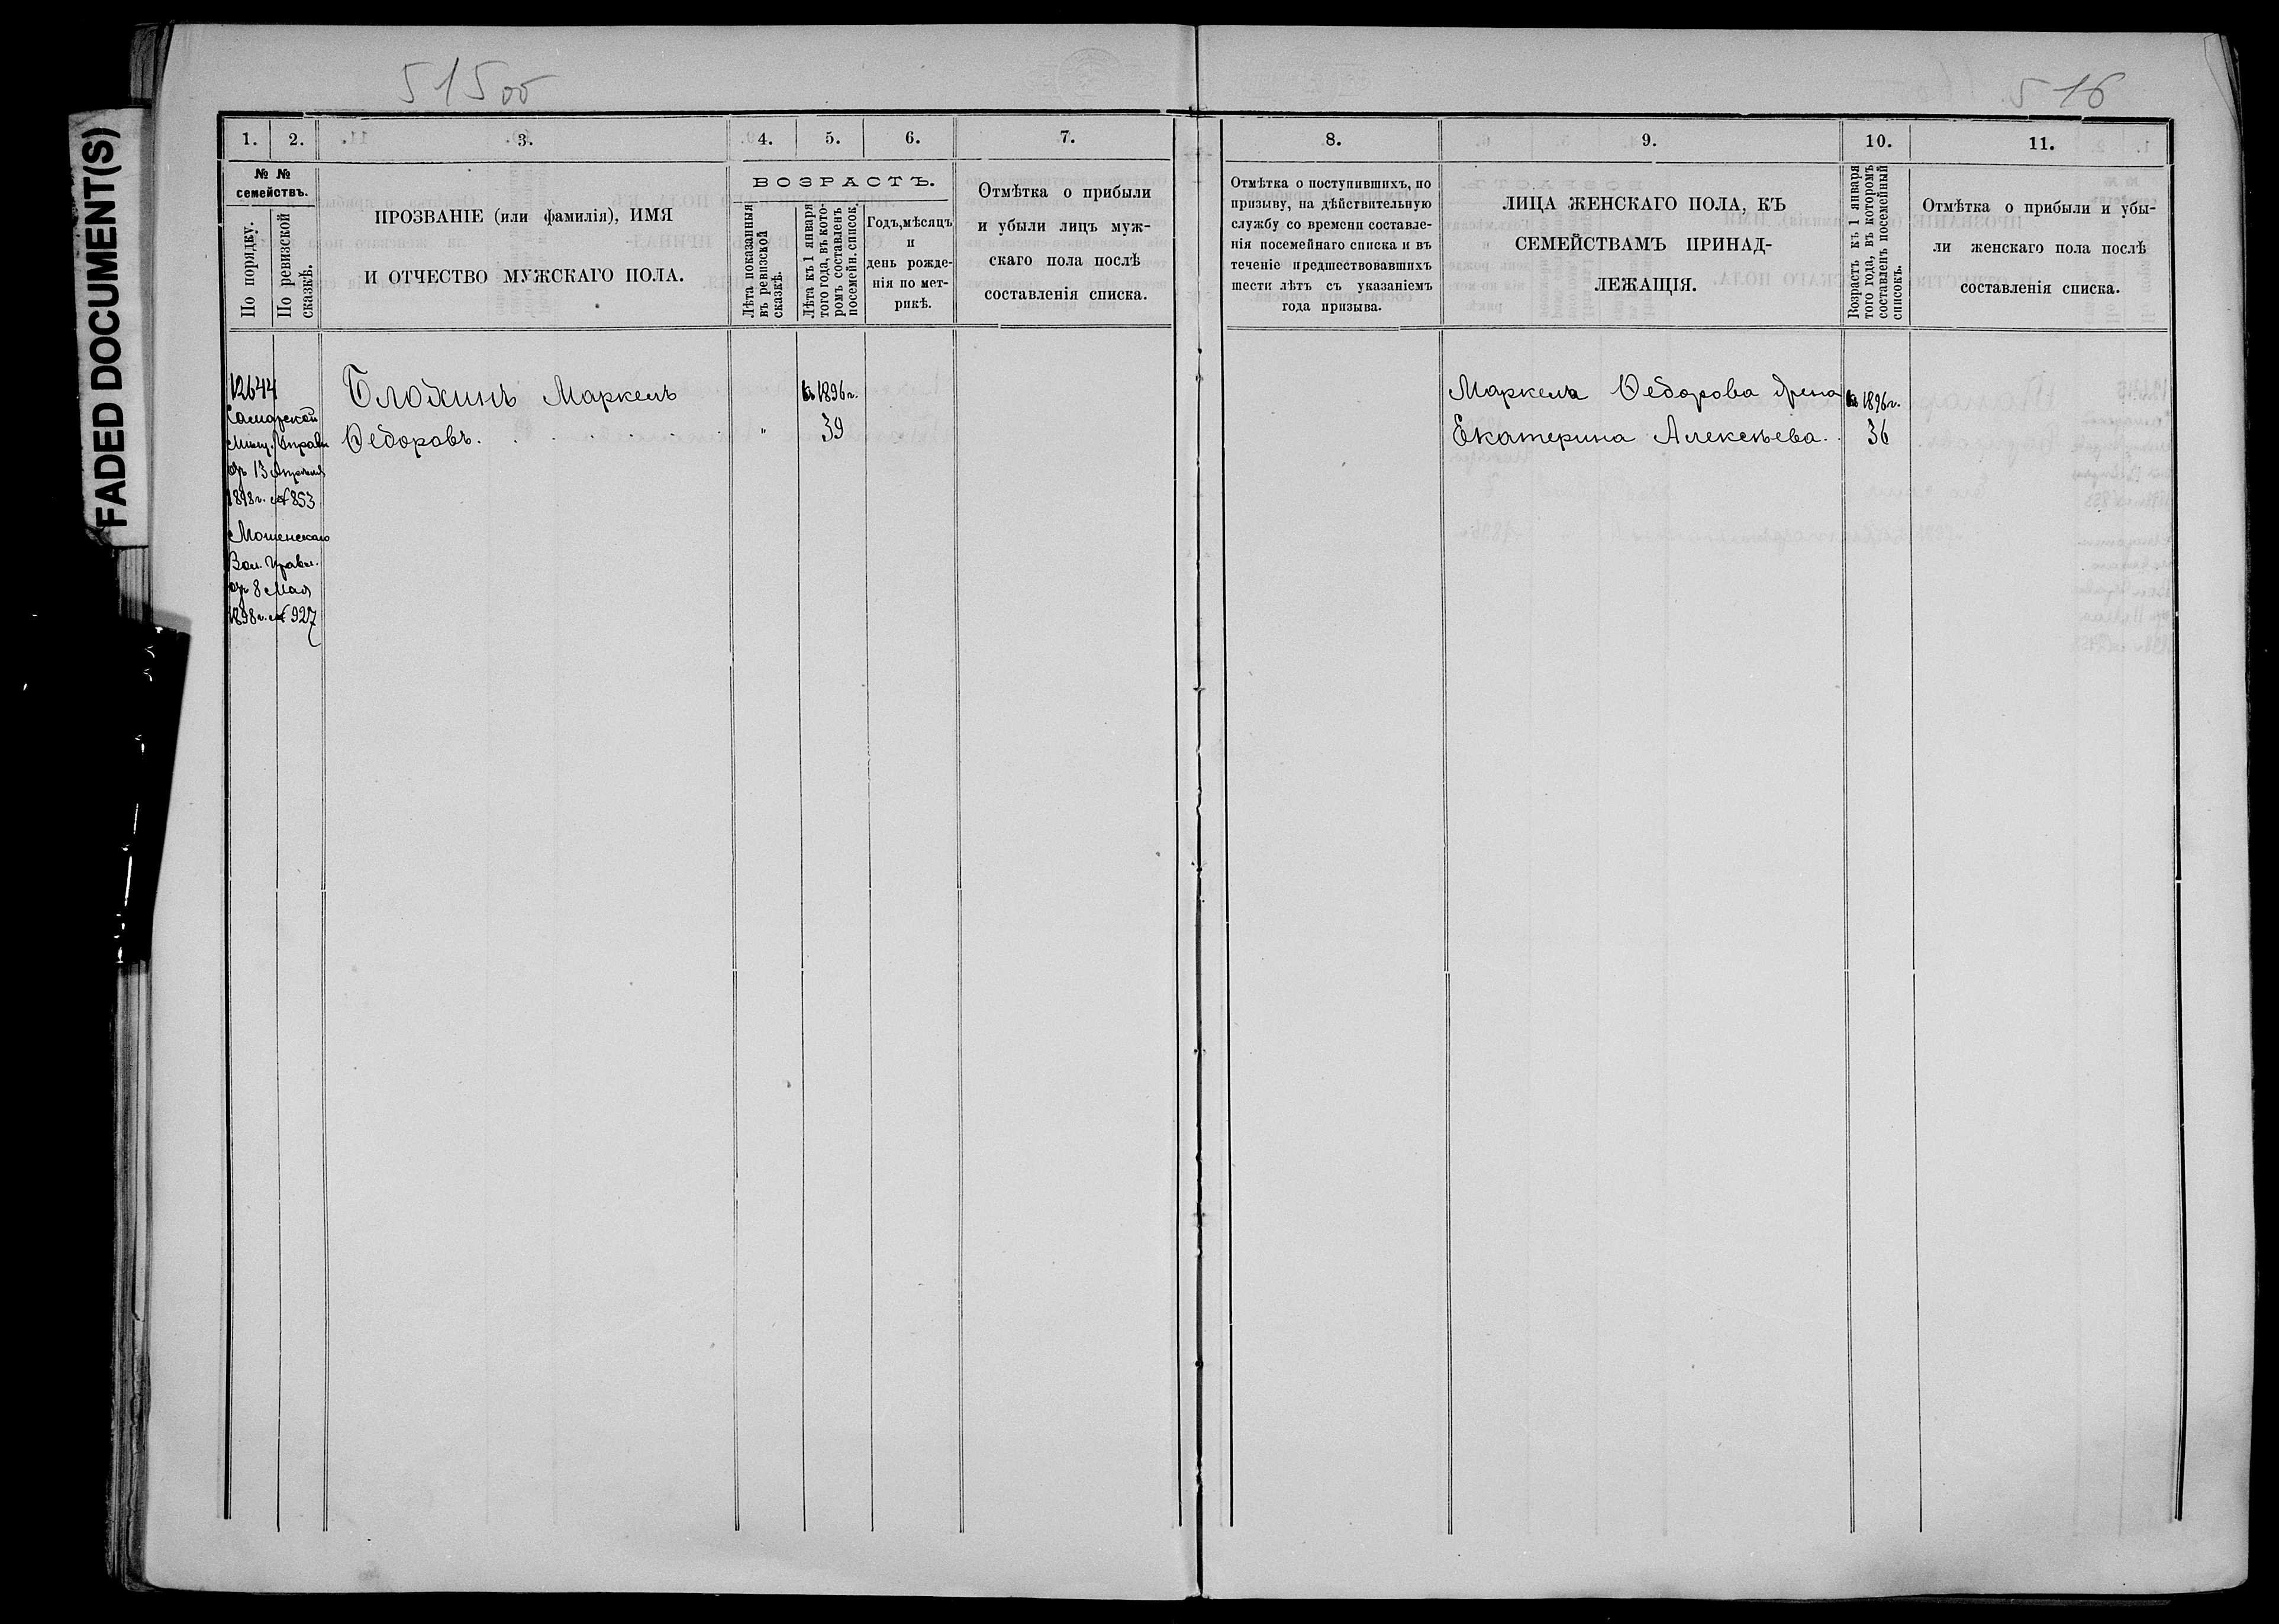 FADED DOCUMENT(S)
515об
516
1.
2.
3.
4.
5.
6.
7.
№ №
семействъ.
По порядку.
По ревизской
сказкѣ.
ПРОЗВАНІЕ (или фамилія), ИМЯ
И ОТЧЕСТВО МУЖСКАГО ПОЛА.
ВОЗРАСТЪ.
Лѣта показанныя
въ ревизской
сказкѣ.
Лѣта къ 1 января
того года, въ кото-
ромъ составленъ
посемейн. список.
Годъ, мѣсяцъ
и
день рожде-
нія по мет-
рикѣ.
Отмѣтка о прибыли
и убыли лицъ муж-
скаго пола послѣ
составленія списка.
12644
Самарской
Мѣщ. Управы
отъ 13 Апрѣля
1898 г. № 853
Мошенскаго
Вол. Правл.
отъ 8 Мая
1898 г. № 927
Блохинъ Маркелъ
Ѳедоровъ. . . . . . . „
къ 1896 г.
39
8.
9.
10.
11.
Отмѣтка о поступившихъ, по
призыву, на дѣйствительную
службу со времени составле-
нія посемейнаго списка и въ
теченіе предшествовавшихъ
шести лѣтъ съ указаніемъ
года призыва.
ЛИЦА ЖЕНСКАГО ПОЛА, КЪ
СЕМЕЙСТВАМЪ ПРИНАД-
ЛЕЖАЩІЯ.
Возрастъ къ 1 января
того года, въ которомъ
составленъ посемейный
списокъ.
Отмѣтка о прибыли и убы-
ли женскаго пола послѣ
составленія списка.
Маркела Ѳедорова жена
Екатерина Алексѣева. .
къ 1896 г.
36